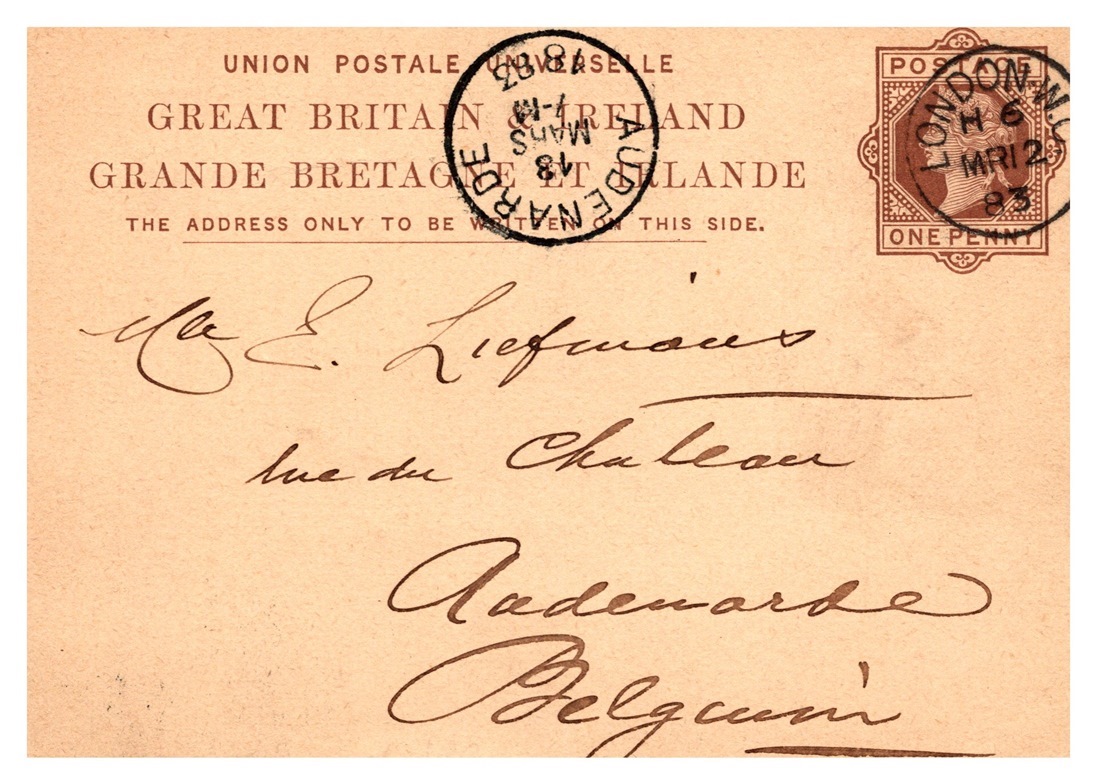 UNION POSTALE UNIVERSELLE
GREAT BRITAIN & IRELAND
GRANDE BRETAGNE ET IRLANDE
THE ADDRESS ONLY TO BE WRITTEN ON THIS SIDE.
AUDENARDE
13
MARS
7-M
1883
POSTAGE
ONE PENNY
LONDON-W.C
H 6
MR 12
83
Mr E. Liefmans
rue du Chateau
Audenarde
Belgium